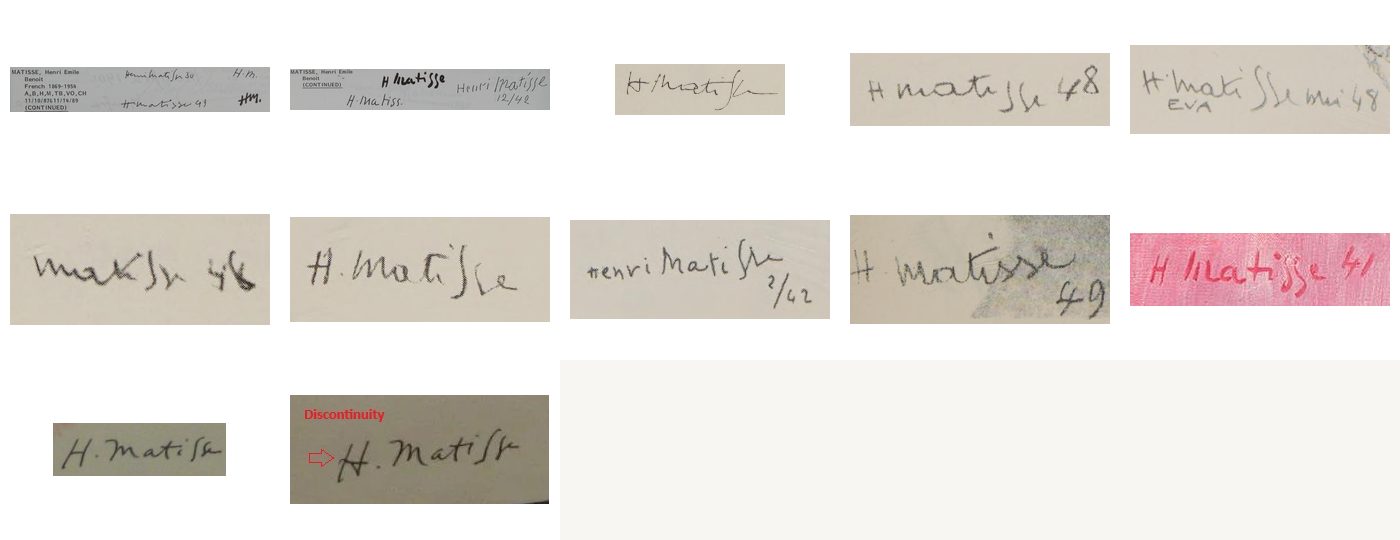 MATISSE, Henri Emile
Benoit
French 1869-1954
A,B,H,M,TB,VO,CH
11/10/87&11/14/89
(CONTINUED)
Henri Matisse
H.M.
H matisse 49
HM.
MATISSE, Henri Emile
Benoit
(CONTINUED)
H matisse
Henri Matisse
12/42
H. matiss.
H. Matisse
H matisse 48
H. Mati sse mai 48
EVA
matisse 48
H. Matisse
Henri Matisse
2/42
H. matisse
49
H Matisse 41
H. Matisse
Discontinuity
H. Matisse